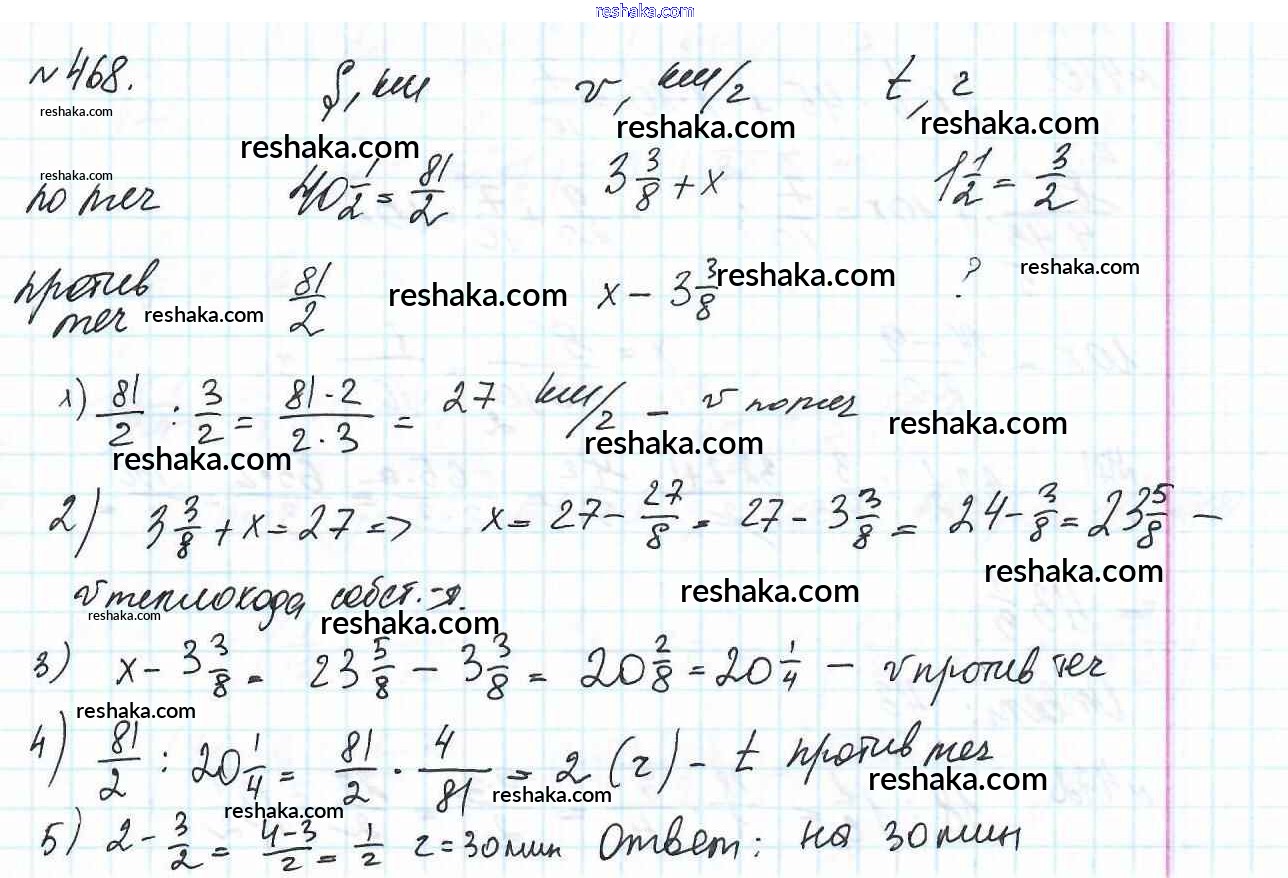 reshaka.com
№ 468. S, км v, км/г t, г
reshaka.com reshaka.com reshaka.com reshaka.com
reshaka.com
по теч 40 1/2 = 81/2 3 3/8 + x 1 1/2 = 3/2
против теч 81/2 x - 3 3/8 ?
reshaka.com reshaka.com reshaka.com reshaka.com
1) 81/2 : 3/2 = 81·2/2·3 = 27 км/г - v по теч
reshaka.com reshaka.com reshaka.com
2) 3 3/8 + x = 27 => x = 27 - 27/8 = 27 - 3 3/8 = 24 - 3/8 = 23 5/8 -
reshaka.com
v теплохода собст.-я.
reshaka.com reshaka.com reshaka.com
3) x - 3 3/8 = 23 5/8 - 3 3/8 = 20 2/8 = 20 1/4 - v против теч
reshaka.com
4) 81/2 : 20 1/4 = 81/2 · 4/81 = 2 (г) - t против теч
reshaka.com reshaka.com reshaka.com
5) 2 - 3/2 = 4-3/2 = 1/2 г = 30 мин Ответ: на 30 мин